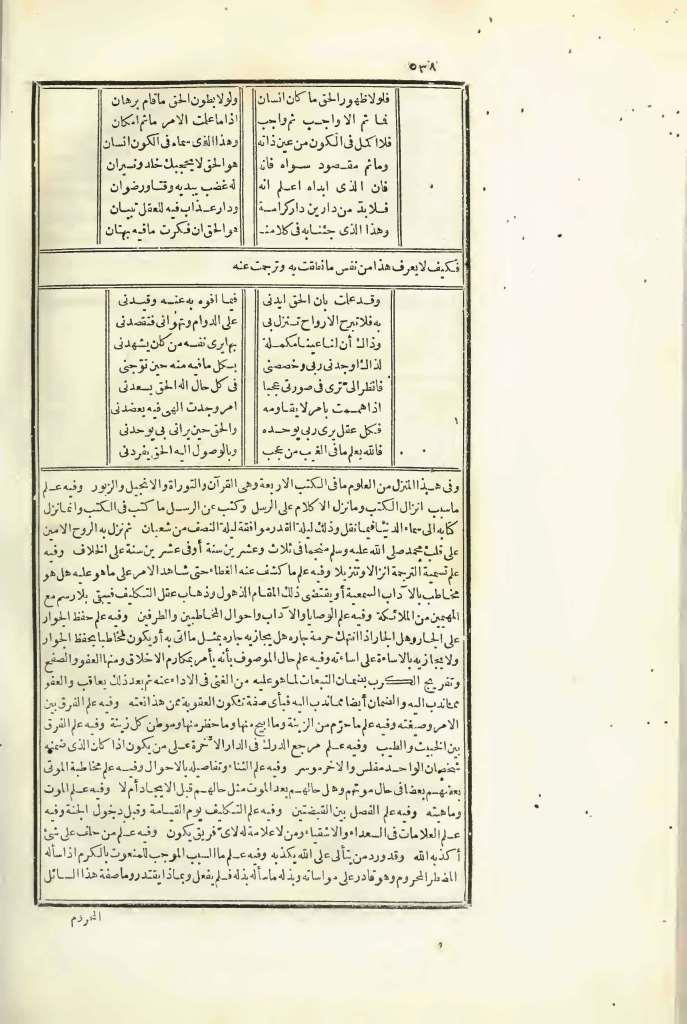 ٥٣٨
فلولا ظهور الحق ما كان انسان ولولا بطون الحق ما قام برهان
فما ثم الا واجب ثم واجب اذا ما علت الامر ما ثم امكان
فلا اكمل فى الكون من عين ذاته وهذا الذى سماه فى الكون انسان
وما ثم مقصود سواه فانه هو الحق لا يحجبك خلد ونيران
فان الذى ابداه اعلم انه له غضب يبديه وقتا ورضوان
فلا بد من دارين دار كرامة ودار عذاب فيه للعقل تبيان
وهذا الذى جئنا به فى كلامنا هو الحق ان فكرت ما فيه بهتان
فكيف لا يعرف هذا من نفس ما نطقت به وترجمت عنه
وقد علمت بان الحق ايدنى فيما افوه به عنه وقيدنى
به فلا تبرح الارواح تنزل بى على الدوام وتهوانى فتقصدنى
وذاك أن لنا عينا مكملة بها يرى نفسه من كان يشهدنى
لذاك اوجدنى ربى وخصصنى بكل ما فيه منه حين توّجنى
فانظر الىّ ترى فى صورتى عجبا فى كل حال اله الحق يسعدنى
اذا هممت بامر لا يقاومه امر وجدت الهى فيه يعضدنى
فكل عقل يرى ربى يوحده والحق حين يرانى بى يوحدنى
فالله يعلم ما فى الغيب من عجب وبالوصول اليه الحق يفردنى
وفى هذا المنزل من العلوم ما فى الكتب الاربعة وهى القرآن والتوراة والانجيل والزبور وفيه علم
ما سبب انزال الكتب وما نزل الا كلام على الرسل وكتب عن الرسل ما كتب فى الكتب وانما نزل
كتابه الى سماء الدنيا فيما نقل وذلك ليلة القدر موافقة ليلة النصف من شعبان ثم نزل به الروح الامين
على قلب محمد صلى الله عليه وسلم منجما فى ثلاث وعشرين سنة أو فى عشرين سنة على الخلاف وفيه
علم تسمية الترجمة انزالا وتنزيلا وفيه علم ما كشف عنه الغطاء حتى شاهد الامر على ما هو عليه هل هو
مخاطب بالآداب السمعية أو يقتضى ذلك المقام الذهول وذهاب عقل التكليف فيبقى بلا رسم مع
المهيمين من الملائكة وفيه علم الوصايا والآداب واحوال المخاطبين والطرفين وفيه علم حفظ الجوار
على الجار وهل الجار اذا انتهك حرمة جاره هل يجازيه جاره بمثل ما اتى به أو يكون مخاطبا بحفظ الجوار
ولا يجازيه بالاساءة على اساءته وفيه علم حال الموصوف بأنه يأمر بمكارم الاخلاق ومنها العفو والصفح
وتفريج الكرب بضمان التبعات لما هو عليه من الغنى فى الاداء عنه ثم بعد ذلك يعاقب والعفو
مما يندب اليه والضمان أيضا مما يندب اليه فبأى صفة تكون العقوبة ممن هذا نعته وفيه علم الفرق بين
الامر وصيغته وفيه علم ما حرّم من الزينة وما ابيح منها وما حظر منها وموطن كل زينة وفيه علم الفرق
بين الخبيث والطيب وفيه علم مرجع الدرك فى الدار الآخرة على من يكون اذا كان الذى ضمنه
شخصان الواحد مفلس والاخر موسر وفيه علم الثناء وتفاصيله بالاحوال وفيه علم مخاطبة الموتى
بعضهم بعضا فى حال موتهم وهل حالهم بعد الموت مثل حالهم قبل الايجاد أم لا وفيه علم الموت
وماهيته وفيه علم الفصل بين القبضتين وفيه علم التكليف يوم القيامة وقبل دخول الجنة وفيه
علم العلامات فى السعداء والاشقياء ومن لا علامة له لاىّ فريق يكون وفيه علم من حلف على شئ
أكذبه الله وقد ورد من يتألى على الله يكذبه وفيه علم ما السبب الموجب للمنعوت بالكرم اذا سأله
المضطر المحروم وهو قادر على مواساته وبذله ما سأله بذله فلم يفعل وبماذا يعتذر وما صفة هذا السائل
المحروم